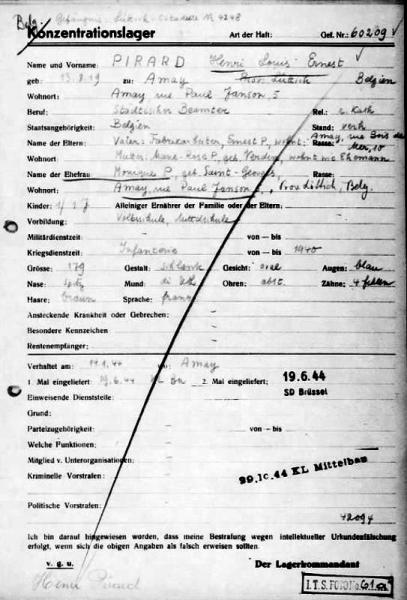 Belg. Gefängnis Lüttich-Citadelle N 4248
Konzentrationslager Art der Haft: Gef. Nr.: 60209 V
Name und Vorname: PIRARD Henri Louis Ernest
geb: 13.8.19 zu: Amay Prov. Lüttich Belgien
Wohnort: Amay rue Paul Janson 5
Beruf: Städtischer Beamter Rel.: r. Kath
Staatsangehörigkeit: Belgien Stand: verh
Name der Eltern: Vater: Fabrikarbeiter, Ernest P, wohnt: Amay, rue Bois de Rasse: 10
Mutter: Marie-Rose P, geb. wohnt mit Ehemann
Name der Ehefrau: Monique P, geb. Saint-Georges, Rasse:
Wohnort: Amay, rue Paul Janson 5, Prov Lüttich, Belg.
Kinder: 1 Alleiniger Ernährer der Familie oder der Eltern:
Vorbildung: Volksschule, Mittelschule
Militärdienstzeit: von — bis
Kriegsdienstzeit: Infanterie von — bis 1940
Grösse: 179 Gestalt: schlank Gesicht: oval Augen: blau
Nase: Mund: Ohren: abst. Zähne: 4 fehlen
Haare: braun Sprache: franz
Ansteckende Krankheit oder Gebrechen:
Besondere Kennzeichen
Rentenempfänger:
Verhaftet am: 11.1.44 wo: Amay
1. Mal eingeliefert: 19.6.44 KL Bu 2. Mal eingeliefert; 19.6.44
Einweisende Dienststelle: SD Brüssel
Grund:
Parteizugehörigkeit: von — bis
Welche Funktionen:
Mitglied v. Unterorganisationen:
Kriminelle Vorstrafen: 29.10.44 KL Mittelbau
Politische Vorstrafen:
42094
Ich bin darauf hingewiesen worden, dass meine Bestrafung wegen intellektueller Urkundenfälschung
erfolgt, wenn sich die obigen Angaben als falsch erweisen sollten.
v. g. u. Der Lagerkommandant
Henri Pirard I.T.S. FOTO No. 61